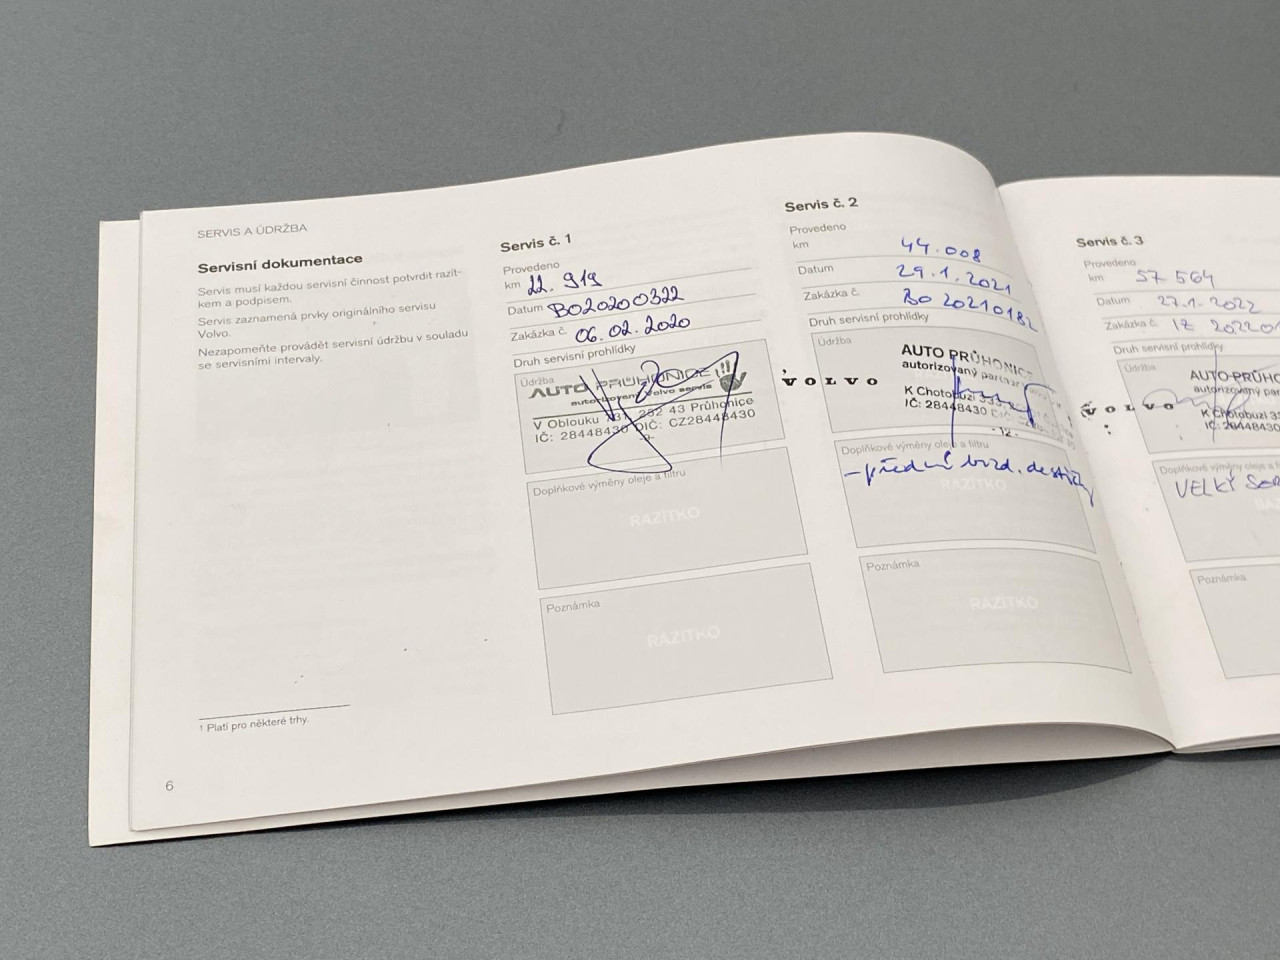 SERVIS A ÚDRŽBA
Servisní dokumentace
Servis musí každou servisní činnost potvrdit razít-
kem a podpisem.
Servis zaznamená prvky originálního servisu
Volvo.
Nezapomeňte provádět servisní údržbu v souladu
se servisními intervaly.
1 Platí pro některé trhy.
6
Servis č. 1
Provedeno
km 22. 919
Datum BO20200322
Zakázka č. 06.02.2020
Druh servisní prohlídky
Údržba
AUTO PRŮHONICE
autorizovaný Volvo servis
V Oblouku 252 43 Průhonice
IČ: 28448430 DIČ: CZ28448430
-9-
Doplňkové výměny oleje a filtru
RAZÍTKO
Poznámka
RAZÍTKO
Servis č. 2
Provedeno
km 44.008
Datum 29.1.2021
Zakázka č. BO 20210182
Druh servisní prohlídky
Údržba
AUTO PRŮHONICE
autorizovaný partner
VOLVO
K Chotobuzi
IČ: 28448430
-12-
Doplňkové výměny oleje a filtru
- přední brzd. destičky
RAZÍTKO
Poznámka
RAZÍTKO
Servis č. 3
Provedeno
km 57 564
Datum 27.1.2022
Zakázka č. 
Druh servisní prohlídky
Údržba
AUTO PRŮHO
autorizovaný pa
VOLVO
K Chotobuzi
IČ: 28448430
Doplňkové výměny oleje a
VELKÝ SER
Poznámka